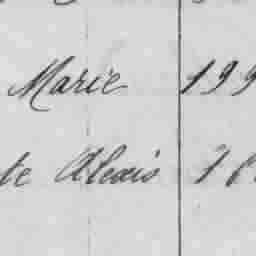 Marie 199
te Alexis 18